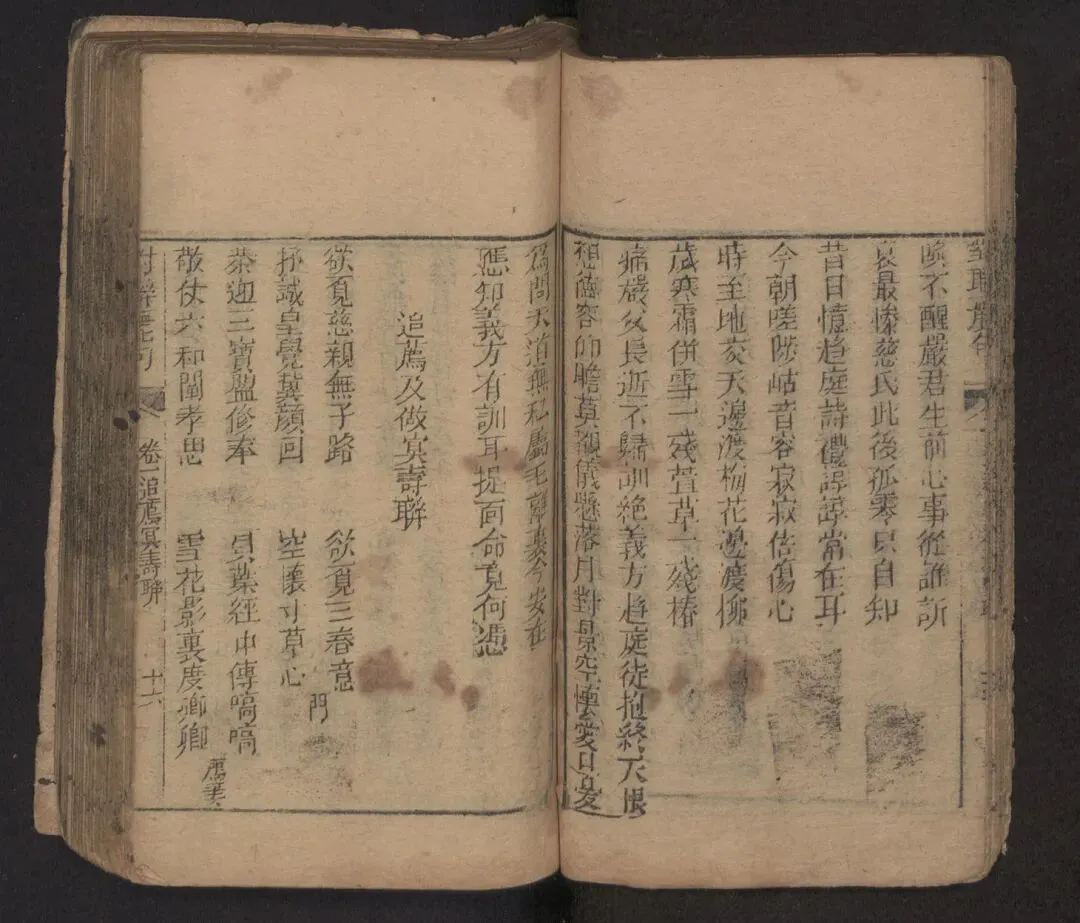 喚不醒嚴君生前心事從誰訴
哀最慘慈氏此後孤零只自知
昔日憶趨庭詩禮諄諄常在耳
今朝嗟陟岵音容寂寂倍傷心
時至地亥天邊渡梅花邊渡柳
歲寒霜併雪一殘萱草一殘椿
痛嚴父長逝不歸訓絶義方趨庭徒抱終天恨
想德容仰瞻莫覩儀懸落月對景空懷愛日
為問天道無私屬毛離裏今安在
應知義方有訓耳提面命覓何憑
追薦及做冥壽聯
欲覓慈親無子路 欲覓三春意
拯誠皇覺冀顏回 空懷寸草心 門
恭迎三寶盟修奉 貝葉經中傳嗃嗃
敬仗六和闡孝思 雪花影裏度卿卿 薦妻
卷一追薦冥壽聯 十六